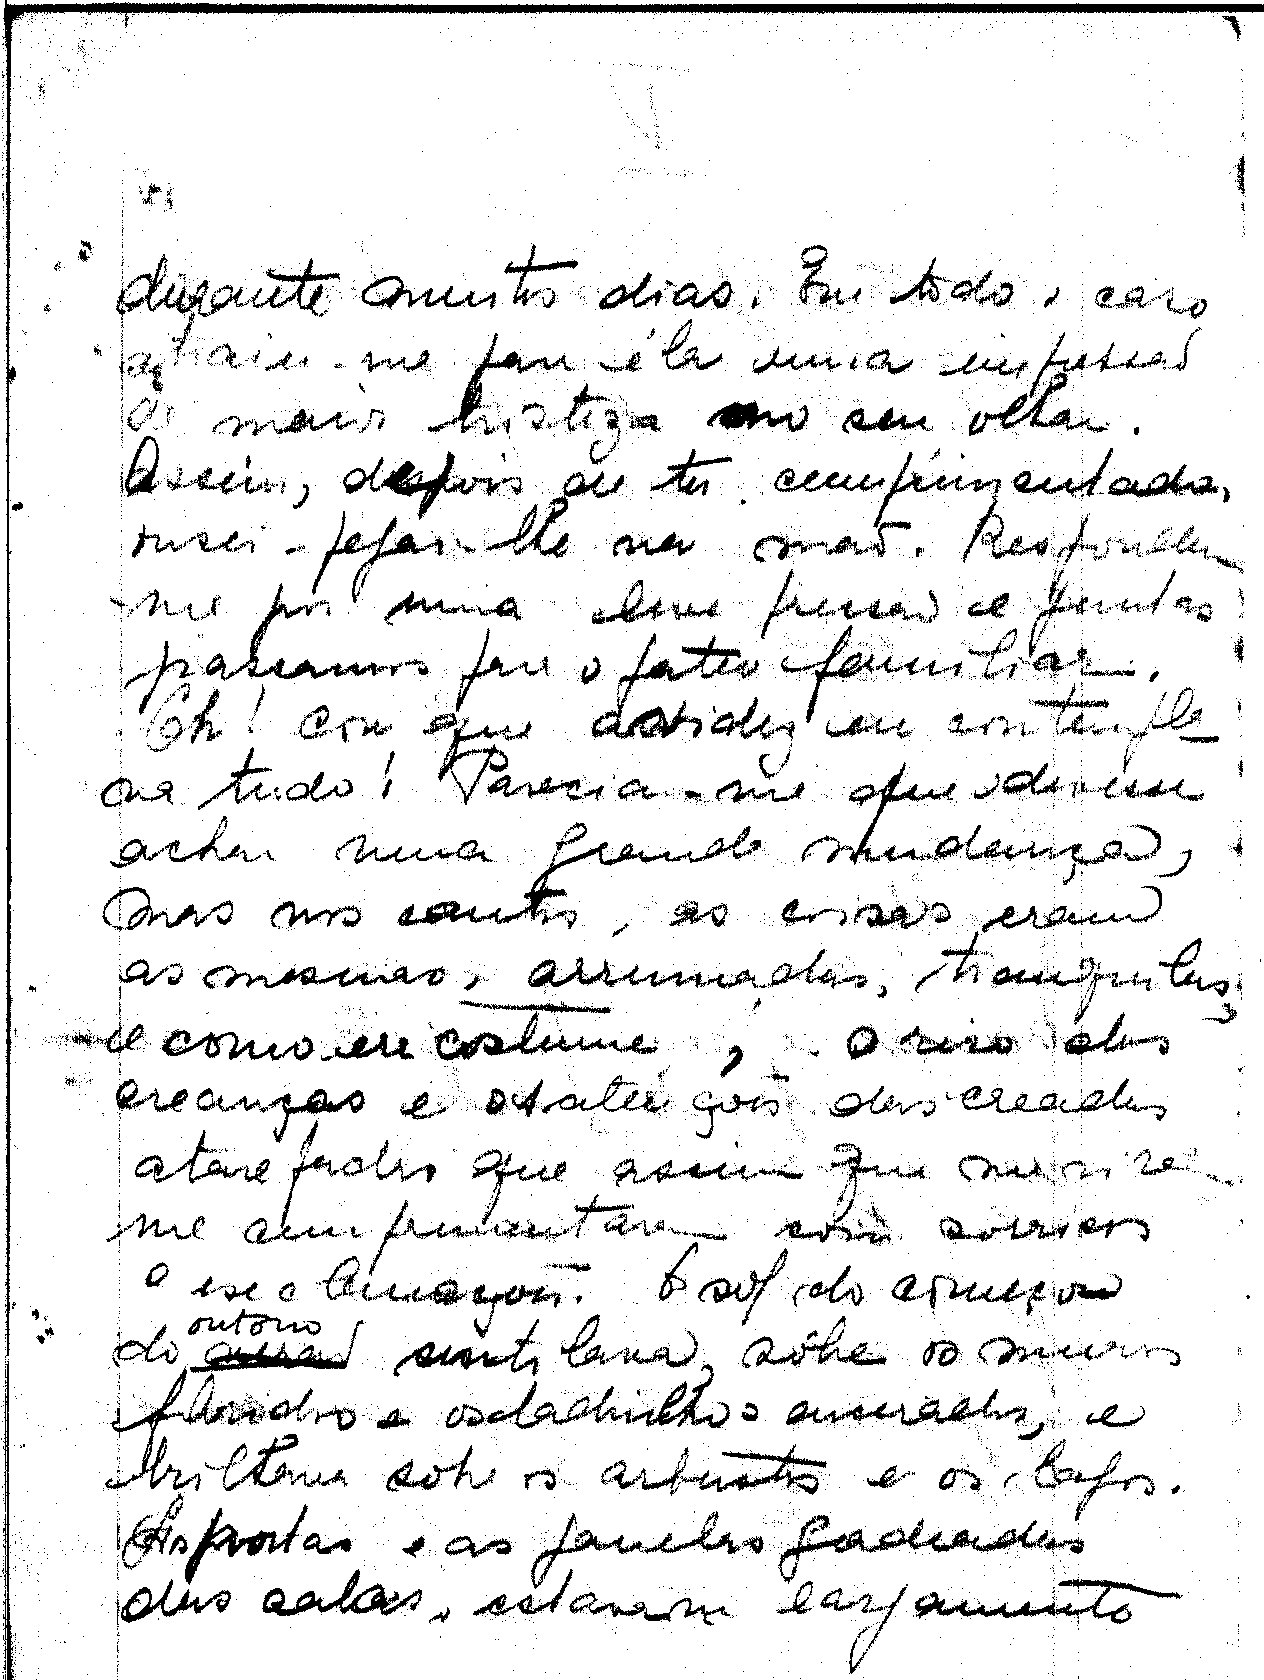 durante muitos dias. Em todo o caso
atraiu-me para ela uma impressão
de maior tristeza no seu olhar.
Assim, depois de ter cumprimentada,
ousei pegar-lhe na mão. Respondeu
me por uma leve pressão e juntas
passamos para o pateo familiar.
Oh! Con que avidez eu contempla
va tudo! Parecia-me que devesse
achar uma grande mudança,
mas nos cantos, as coisas eram
as mesmas, arrumadas, tranquilas,
e como era costume, o riso das
creanças e os dos creados
atarefados que assim que me
me cumprimentaram com sorrisos
e exclamações. O sol do começou
do outono sintilava, sôbre os muros
floridos e os ladrilhos, e
brilhava sobre os arbustos e os lagos.
As portas e as janelas gradeadas
das salas, estavam largamente